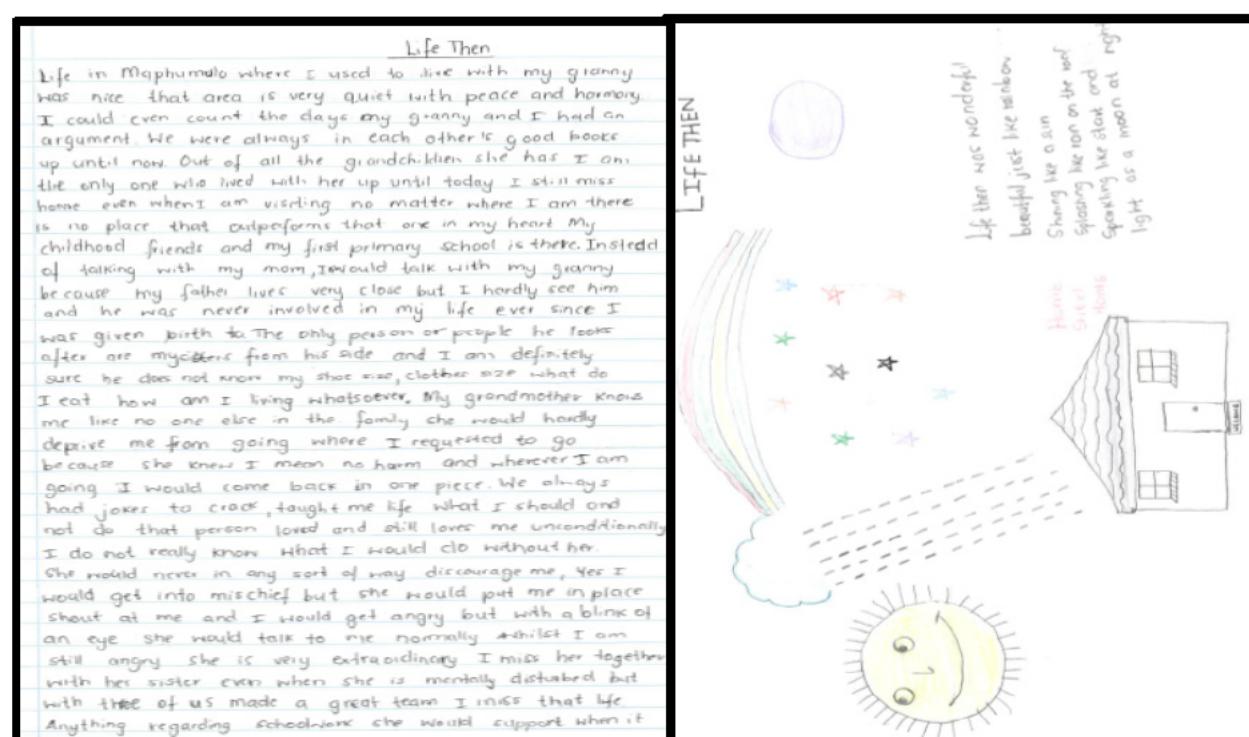 Life Then
Life in Maphumulo where I used to live with my granny
was nice that area is very quiet with peace and harmony
I could even count the days my granny and I had an
argument. We were always in each other's good books
up until now. Out of all the grandchildren she has I am
the only one who lived with her up until today I still miss
home even when I am visiting no matter where I am there
is no place that outperforms that one in my heart My
childhood friends and my first primary school is there. Instead
of talking with my mom, I would talk with my granny
because my father lives very close but I hardly see him
and he was never involved in my life ever since I
was given birth to. The only person or people he looks
after are my from his side and I am definitely
sure he does not know my shoe size, clothes size what do
I eat how am I living whatsoever. My grandmother knows
me like no one else in the family she would hardly
deprive me from going where I requested to go
because she knew I mean no harm and wherever I am
going I would come back in one piece. We always
had jokes to crack, taught me life what I should and
not do that person loved and still loves me unconditionally
I do not really know what I would do without her.
She would never in any sort of way discourage me, Yes I
would get into mischief but she would put me in place
shout at me and I would get angry but with a blink of
an eye she would talk to me normally whilst I am
still angry she is very extraordinary I miss her together
with her sister even when she is mentally disturbed but
with three of us made a great team I miss that life.
Anything regarding schoolwork she would support when it
LIFE THEN
Life then was wonderful
beautiful just like rainbow
Shining like a
like rain on the roof
Sparkling like stars and
light as a moon at night
Home
Sweet
Home
WELCOME